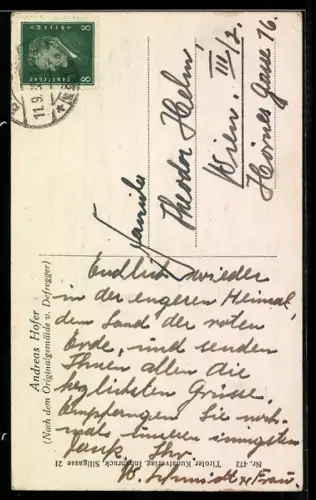 8 8
Deutsches Reich
11.9.
Familie
Theodor Helm
Wien. III/2.
Hörnes Gasse 16.
Andreas Hofer
(Nach dem Originalgemälde v. Defregger)
Endlich wieder
in der engeren Heimat,
dem Land der roten
Erde, und senden
Ihnen allen die
herzlichsten Grüsse.
Empfangen Sie noch-
mals unseren innigsten
Dank. Ihr
W. Schmidt u. Frau.
Nr. 472 Tiroler Kunstverlag Innsbruck, Sillgasse 21